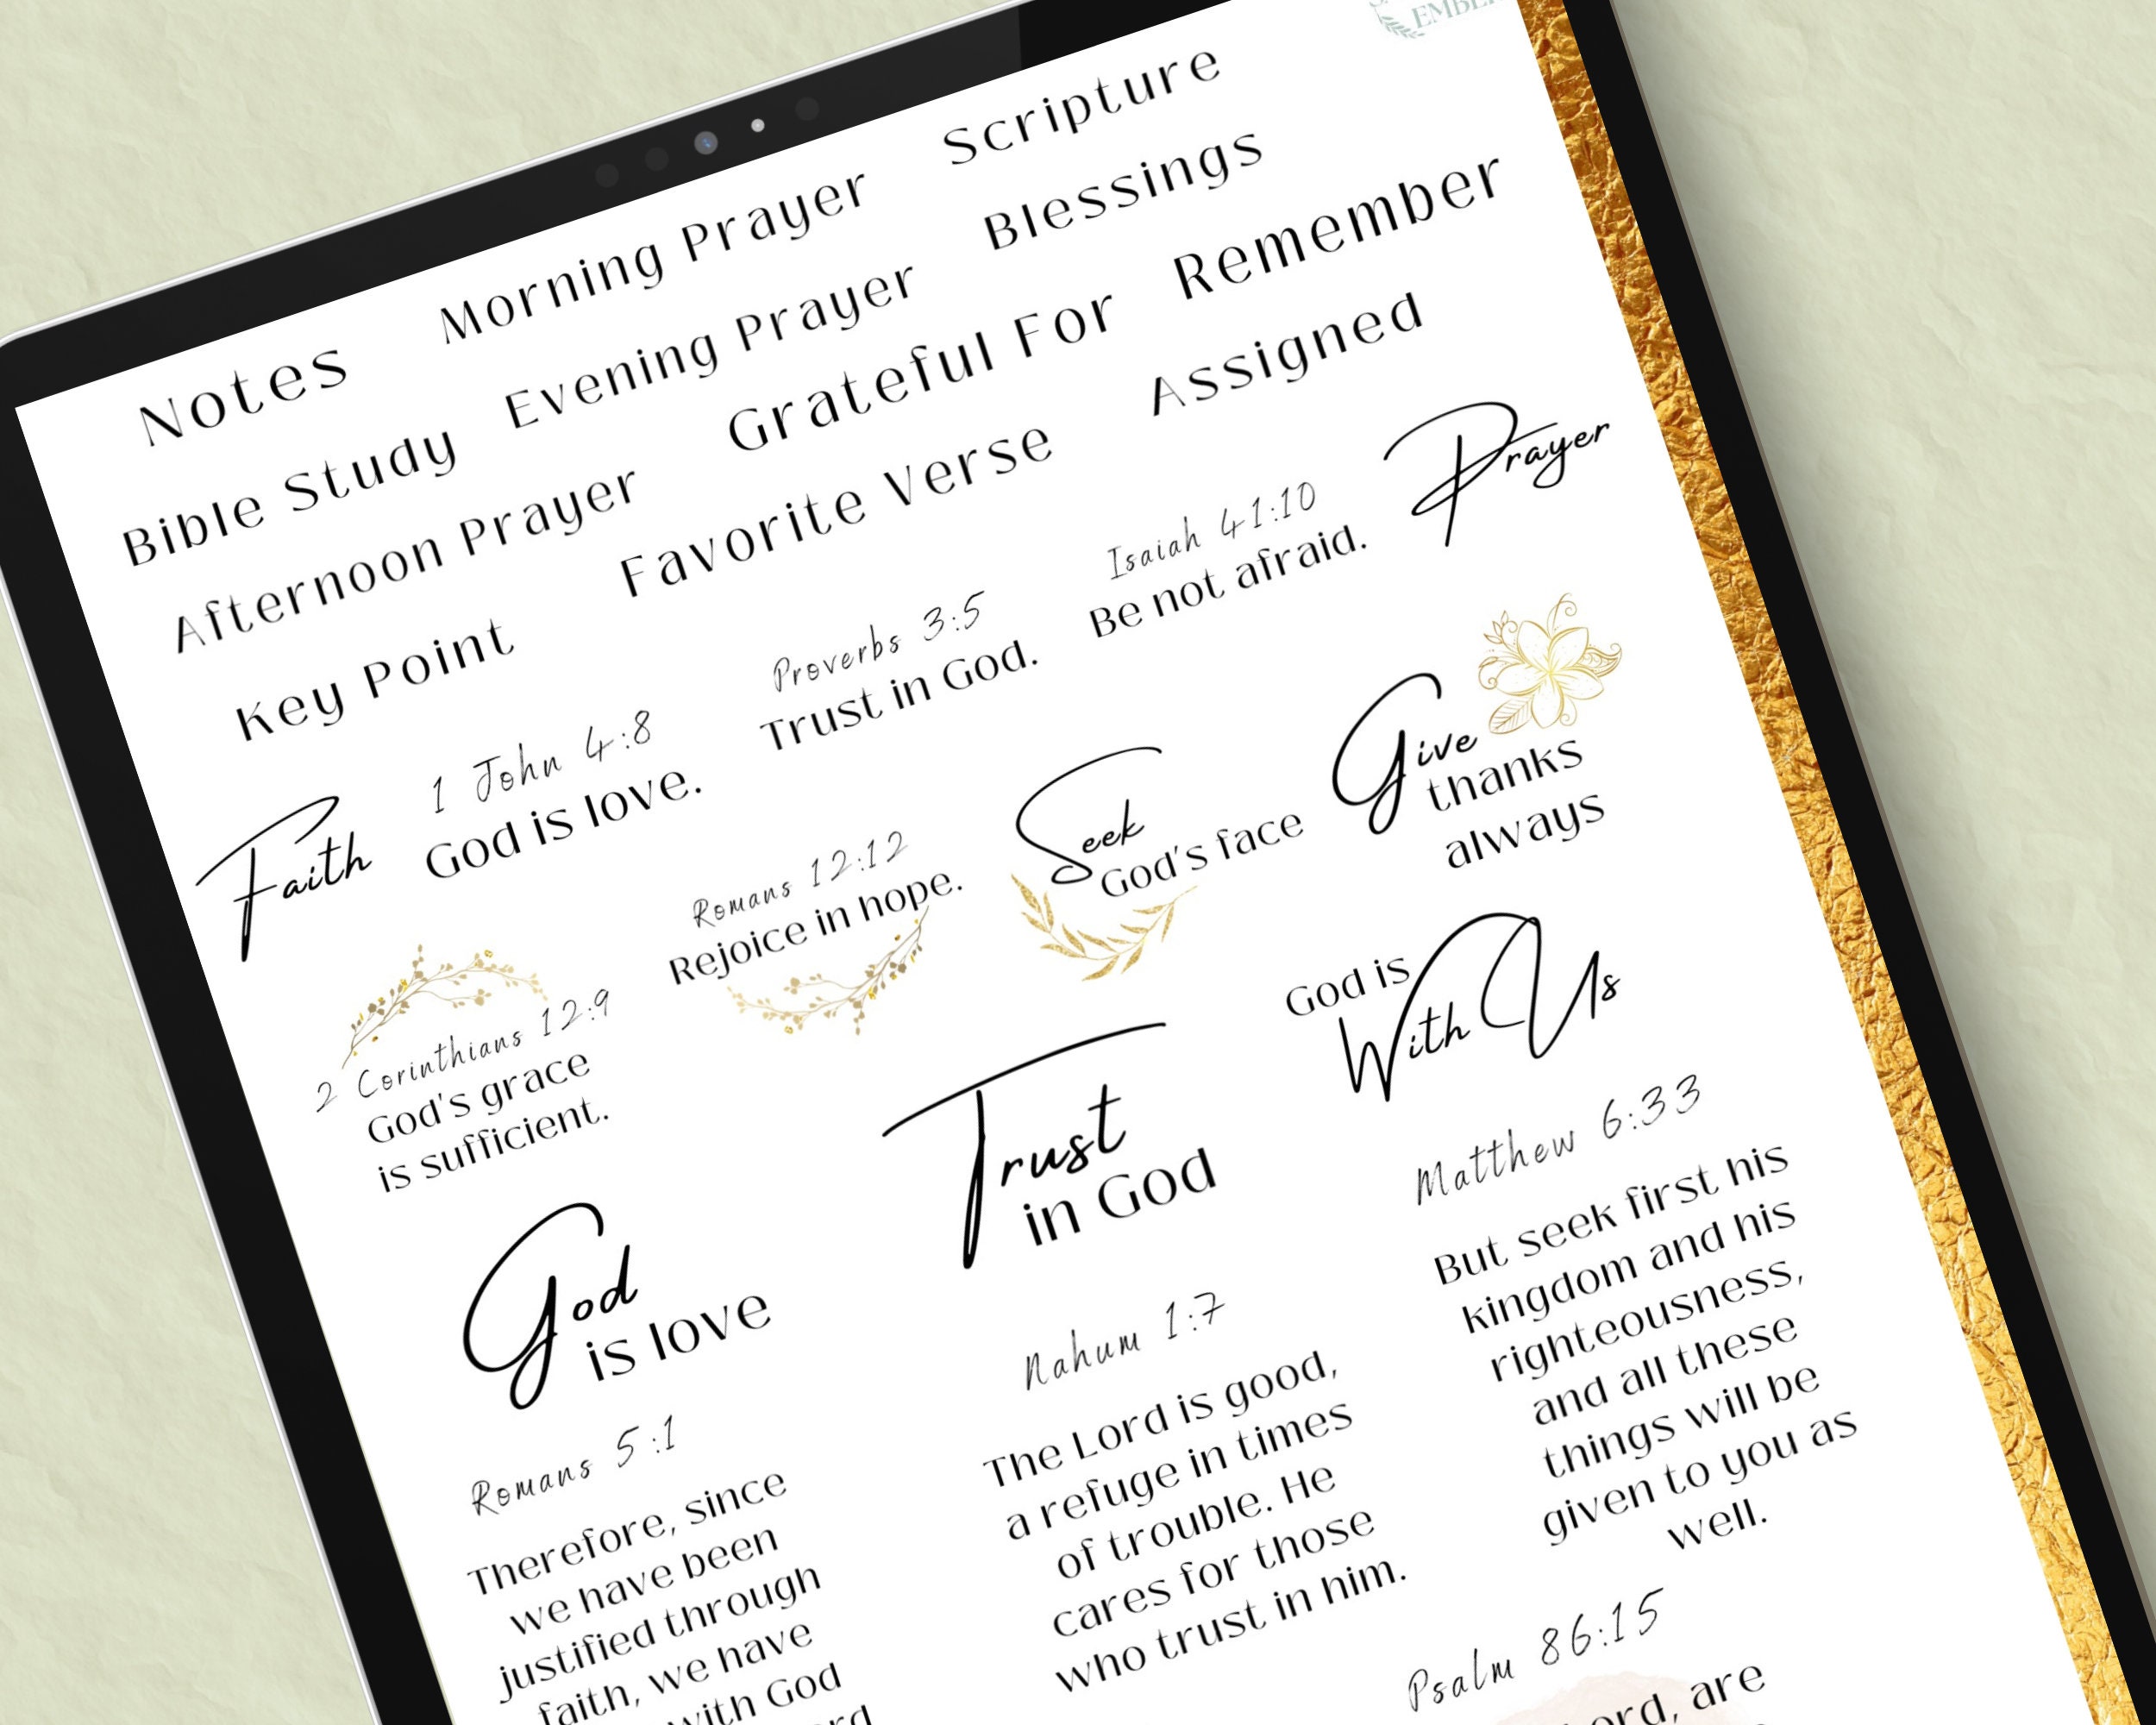 Scripture
Morning Prayer
Blessings
Notes
Evening Prayer
Remember
Bible Study
Grateful For
Assigned
Afternoon Prayer
Favorite Verse
Prayer
Key Point
Isaiah 41:10
Be not afraid.
Proverbs 3:5
Trust in God.
1 John 4:8
God is love.
Faith
Give
thanks
always
Seek
God's face
Romans 12:12
Rejoice in hope.
2 Corinthians 12:9
God's grace
is sufficient.
God is
With Us
Trust
in God
God
is love
Matthew 6:33
But seek first his
kingdom and his
righteousness,
and all these
things will be
given to you as
well.
Nahum 1:7
The Lord is good,
a refuge in times
of trouble. He
cares for those
who trust in him.
Romans 5:1
Therefore, since
we have been
justified through
faith, we have
with God
Psalm 86:15
are